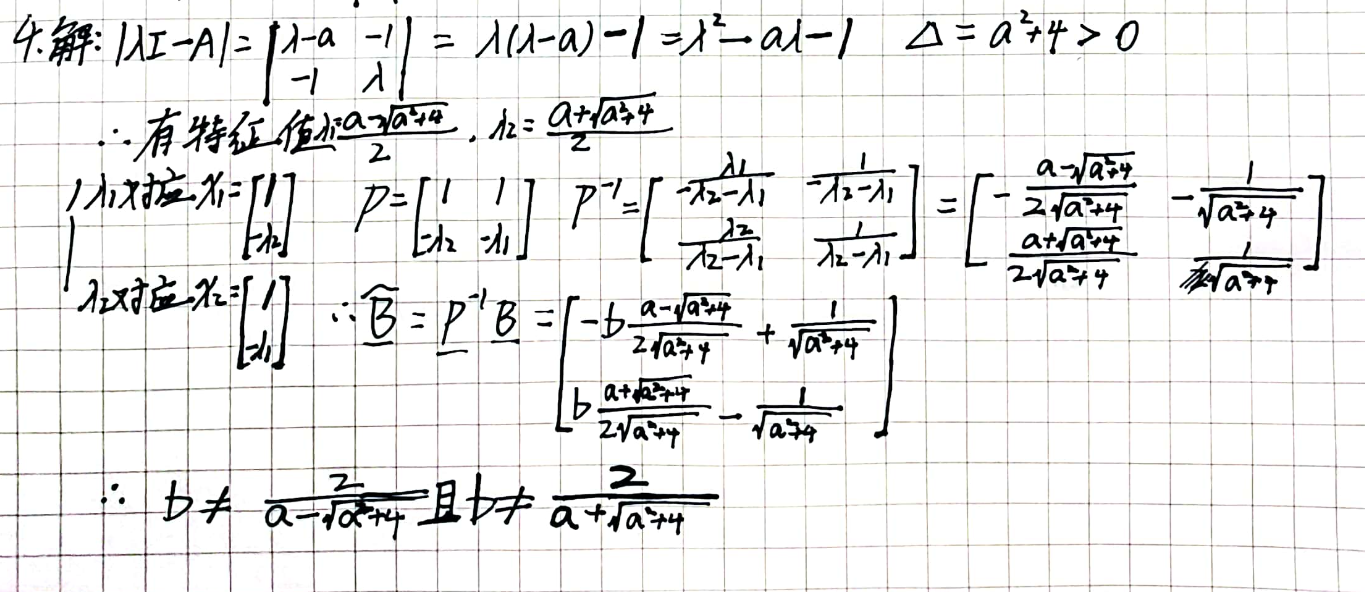 4.解: |λI-A| = |λ-a -1; -1 λ| = λ(λ-a)-1 = λ²-aλ-1 Δ = a²+4 > 0
∴ 有特征值λ₁=(a-√(a²+4))/2, λ₂=(a+√(a²+4))/2
λ₁对应x₁=[1; -λ₂] P=[1 1; -λ₂ -λ₁] P⁻¹=[-λ₁/(λ₂-λ₁) -1/(λ₂-λ₁); λ₂/(λ₂-λ₁) 1/(λ₂-λ₁)] = [-(a-√(a²+4))/(2√(a²+4)) -1/√(a²+4); (a+√(a²+4))/(2√(a²+4)) 1/√(a²+4)]
λ₂对应x₂=[1; -λ₁] ∴ B̃ = P⁻¹B = [-b(a-√(a²+4))/(2√(a²+4)) + 1/√(a²+4); b(a+√(a²+4))/(2√(a²+4)) - 1/√(a²+4)]
∴ b ≠ 2/(a-√(a²+4)) 且 b ≠ 2/(a+√(a²+4))